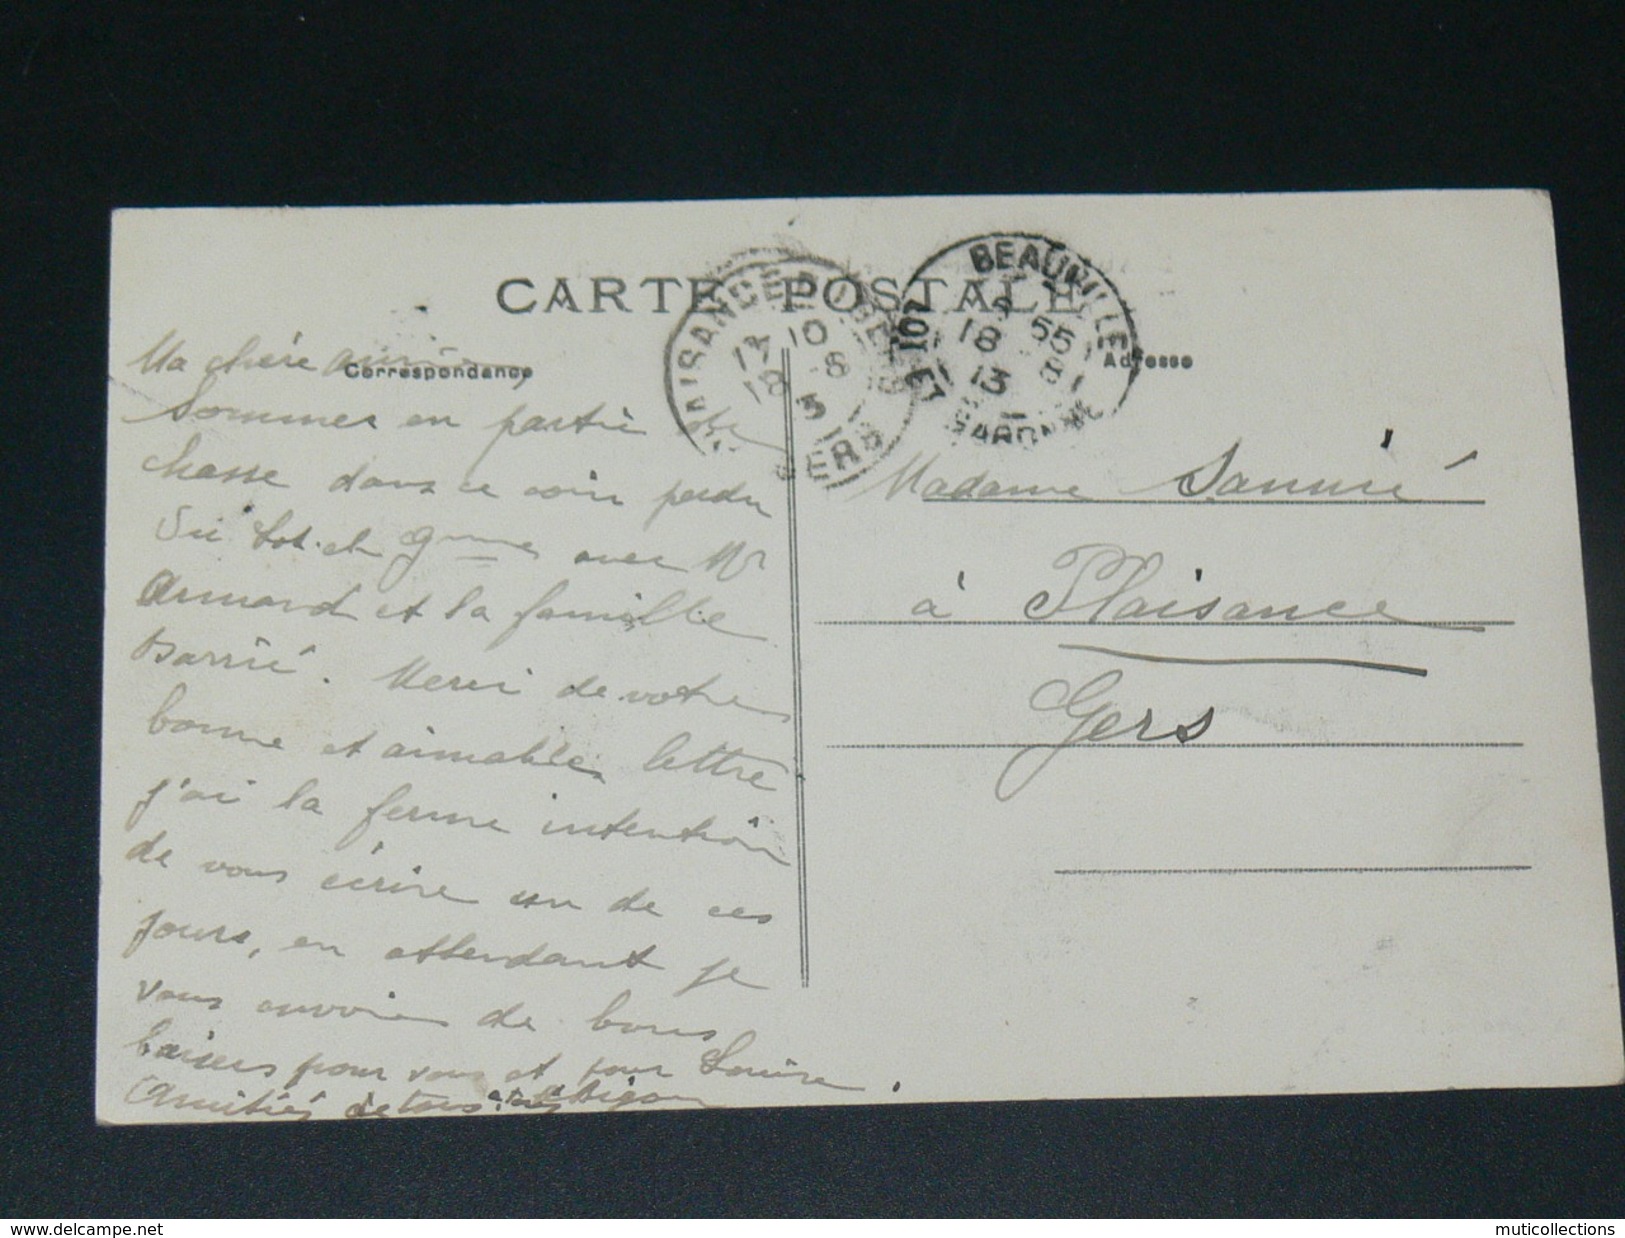 CARTE POSTALE
Correspondance
Adresse
PLAISANCE DU GERS
10
17 8
18 5
GERS
BEAUVILLE
LOT ET GARONNE
18 55
13 8
Ma chère
Sommes en partie de
chasse dans ce coin perdu
du Lot et Gnne avec Mr
Armand et la famille
Barrié. Merci de votre
bonne et aimable lettre
j'ai la ferme intention
de vous écrire un de ces
jours, en attendant je
vous envoie de bons
baisers pour vous et pour Louise.
Amitiés de tous
Madame
à Plaisance
Gers
www.delcampe.net
muticollections